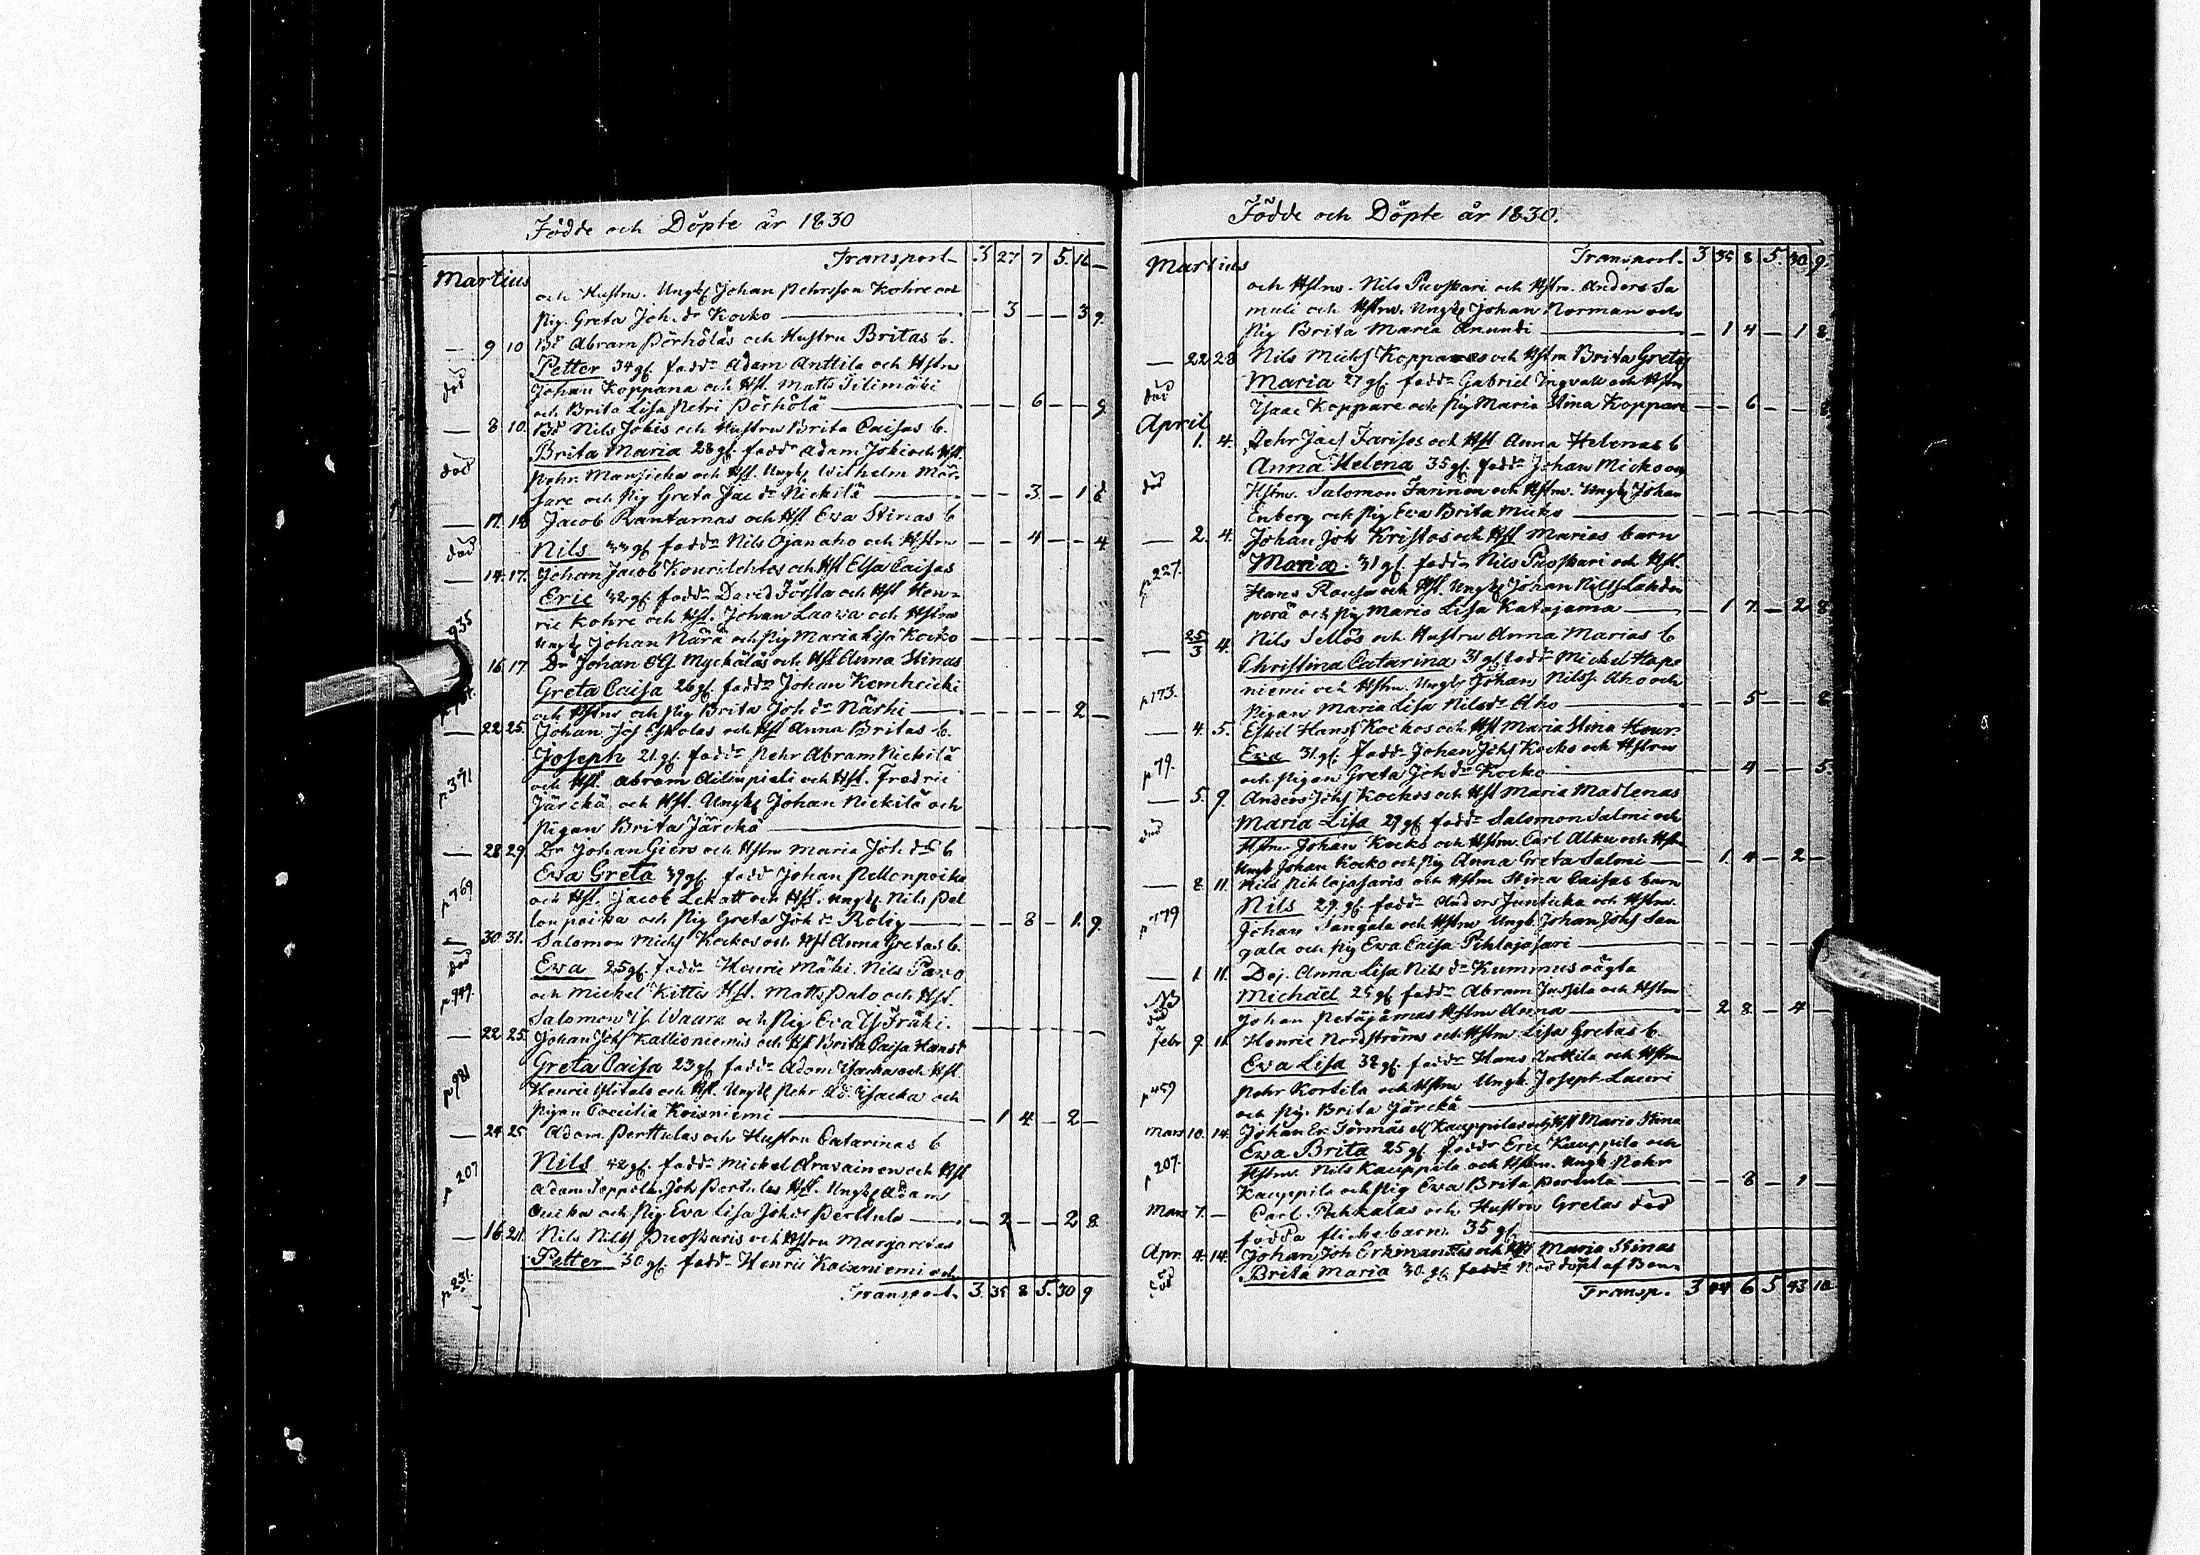 Födde och Döpte år 1830
Transport 3 27 7 5. 16 —
Martius
och Hustru. Ungk Johan Pehrsson Kohre och
Pig. Greta Joh. dr Kocko — — 3 — — 3 9
— 9 10 Bd Abram Pörhöläs och Hustru Britas b.
Petter 34 gl. fadd: Adam Anttila och Hstru
död Johan Koppana och Hst. Matts Tilimäki
och Brita Lisa Petri Pörhölä — — — 6 — — 9
— 8 10. Bd Nils Jokis och Hustru Brita Caisas b.
Brita Maria 28 gl. fadd: Adam Joki och Hst.
död Pehr och Hst. Ungk Wilhelm
och Pig Greta Jac. dr Nickilä — — — 3 — 1 6
— 17. 18 Jacob Rantamas och Hst Ewa Stinas b
död Nils 33 gl. fadd: Nils Ojanaho och Hstru — — 4 — — 4
— 14. 17. Johan Jacob Kourilehtos och Hst Elsa Caisas
Eric 32 gl. fadd: David Förstu och Hst Hen-
ric Kohre och Hst. Johan Laawa och Hstru
935 Ungk Johan Närä och Pig Maria Lisa Kocko — — — — — —
16 17 Dr Johan Myckäläs och Hst Anna Stinas
Greta Caisa 26 gl. fadd: Johan Kemheicki
och Hstru och Pig Brita Joh. dr Närhi — — — — — 2 —
— 22 25. Johan Jos Eskolas och Hst Anna Britas b.
Joseph 21 gl. fadd: Pehr Abram Nickilä
p. 391 och Hst. Abram Ailimpieli och Hst. Fredric
Järckä och Hst. Ungk Johan Nickilä och
Pigan Brita Järckä — — — — — —
— 28 29. Dr Johan Giers och Hstru Maria Joh. drs b
Ewa Greta 39 gl. fadd Johan Pellonpoika
p. 769 och Hst. Jacob Lekatt och Hst. Ungk Nils Pel
lonpoika och Pig Greta Joh dr Rolig — — — 8 — 1. 9.
— 30. 31. Salomon Mich Kockos och Hst Anna Gretas b.
död Ewa 25 gl. fadd: Henric Mäki. Nils Pawo
p. 949. och Mickel Kitti Hst. Matts Palo och Hst.
Salomon Is. Waara och Pig Eva Is. Fräki. — — — — — —
— 22 25. Johan Johs Kallioniemis och Hst Brita Caisa Hansd
Greta Caisa 23 gl. fadd: Adam Isacka och Hst
p. 981 Henric Ylitalo och Hst. Ungk Pehr Ad. Isacka och
Pigan Caecilia Koisniemi — — 1 4 — 2 —
— 24 25 Adam Perttulas och Hustru Catarinas b
Nils 42 gl. fadd: Mickel Arawainen och Hst
p 207 Adam Seppelä. Joh Pertulas Hst. Ungk Adam
och Pig Eva Lisa Joh. dr Perttula — — 2 — — 2 8.
— 16. 21. Nils Nils Puoskaris och Hstru Margaretas
Petter 30 gl. fadd: Henric Koisniemi och
p. 231. Transport. 3. 35 8 5. 30 9
Födde och Döpte år 1830.
Transport. 3 35 8 5. 30. 9
Martius
och Hstru. Nils Puoskari och Hstru. Anders Sa
muli och Hstru. Ungk Johan Norman och
Pig Brita Maria Anundi — — 1 4 — 1 8.
— 22. 28. Nils Michs Koppares och Hstru Brita Gretas
Maria 27 gl. fadd: Gabriel Ingvall och Hstru
död Isaac Koppare och Pig Maria Stina Koppare — — 6 — — 8
April
1. 4. Pehr Jac Farisos och Hst Anna Helenas b
Anna Helena 35 gl. fadd: Johan Micko och
död Hstru. Salomon Farinen och Hstru. Ungk Johan
Enberg och Pig Eva Brita Micko — — — — — —
— 2. 4. Johan Joh Kristos och Hst Marias barn
p 227. Maria. 31 gl. fadd: Nils Puoskari och Hst.
Hans Rousu och Hst. Ungk Johan Nilss Lahden
perä och Pig Maria Lisa Katajama — — 1 7. — 2 8
— 25/3 4. Nils Sellös och Hustru Anna Marias b
Christina Catarina 31 gl. fadd: Michel Hapa
p 173. niemi och Hstru. Ungk Johan Nilss. Aho och
Pigan Maria Lisa Nilsdr Aho — — — 5 — — 8
— 4. 5. Eskel Hans Kockos och Hst Maria Stina
p 79. Eva 31 gl. fadd: Johan Johs Kocko och Hstru
och Pigan Greta Joh dr Kocko — — — 4 — — 5.
— 5. 9. Anders Johs Kockos och Hst Maria Madlenas
död Maria Lisa 29 gl. fadd: Salomon Salmi och
Hstru. Johan Kocko och Hstru. Carl Alku och Hstru
Ungk Johan Kocko och Pig Anna Greta Salmi — — 1 4 — 2 —
— 8. 11. Nils Pihlajasaris och Hstru Stina Caisas barn
p 779 Nils 29 gl. fadd: Anders Junticka och Hstru.
Johan Sangala och Hstru Ungk. Johan Johs San
gala och Pig Ewa Caisa Pihlajasari — — — — — —
— 1. 11. Dej. Anna Lisa Nils dr Kummus oägta
NB död Michaël 25 gl. fadd: Abram Juspila och Hstru
Johan Petäjämas Hstru Anna — — 2 8 — 4 —
Febr 9. 11. Henric Nordströms och Hstru Lisa Gretas b.
Eva Lisa 38 gl. fadd: Hans Anttila och Hstru
p 459 Pehr Kortila och Hstru Ungk Joseph Lauri
och Pig. Brita Järckä
Mars 10. 14. Johan Er. Törmäs ell Kauppilas och Hst Maria Stina
Ewa Brita 25 gl. fadd: Eric Kauppila och
p 207. Hstru. Nils Kauppila och Hstru. Ungk. Pehr
Kauppila och Pig Ewa Brita Pertula — — — 8 — 1 —
Mars 7. — Carl Pahkalas och Hustru Gretas död
födda flickebarn. 35 gl.
Apr. 4. 14. Johan Joh Erkmans och Hst Maria Stinas
död Brita Maria 30. gl. Nöddöpt af
Transp. 3 44 6 5 43 10